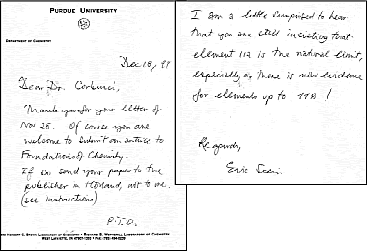 PURDUE UNIVERSITY
DEPARTMENT OF CHEMISTRY
Dec 18, 99
Dear Dr.
Thank you for your letter of
Nov 25. Of course you are
welcome to submit an article to
Foundations of Chemistry.
If so send your paper to the
publisher in Holland, not to me.
(see instructions)
P.T.O.
I am a little surprised to hear
that you are still insisting that
element 112 is the natural limit,
especially as there is now evidence
for elements up to 118!
Regards,
Eric